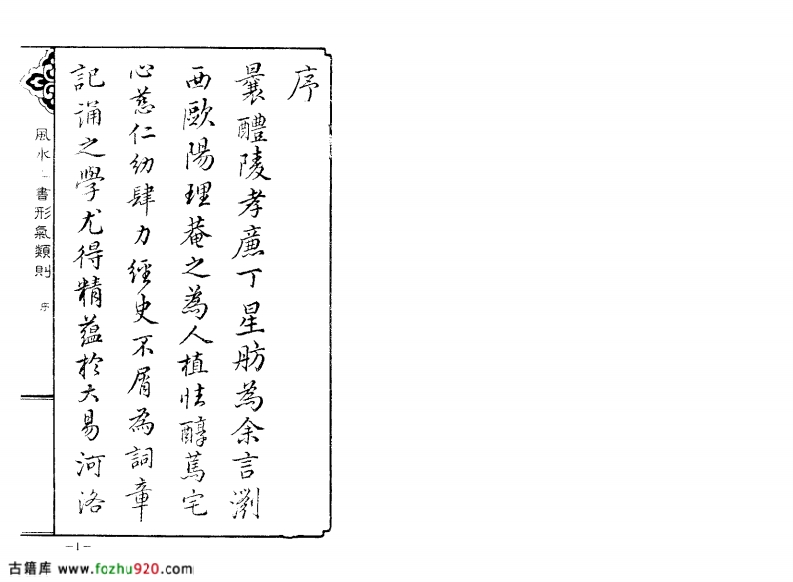 序
曩醴陵孝廉丁星舫為余言瀏
西歐陽理菴之為人植性醇篤宅
心慈仁幼肆力經史不屑為詞章
記誦之學尤得精蘊於大易河洛
風水一書形氣類則 序
—1—
古籍库 www.fozhu920.com